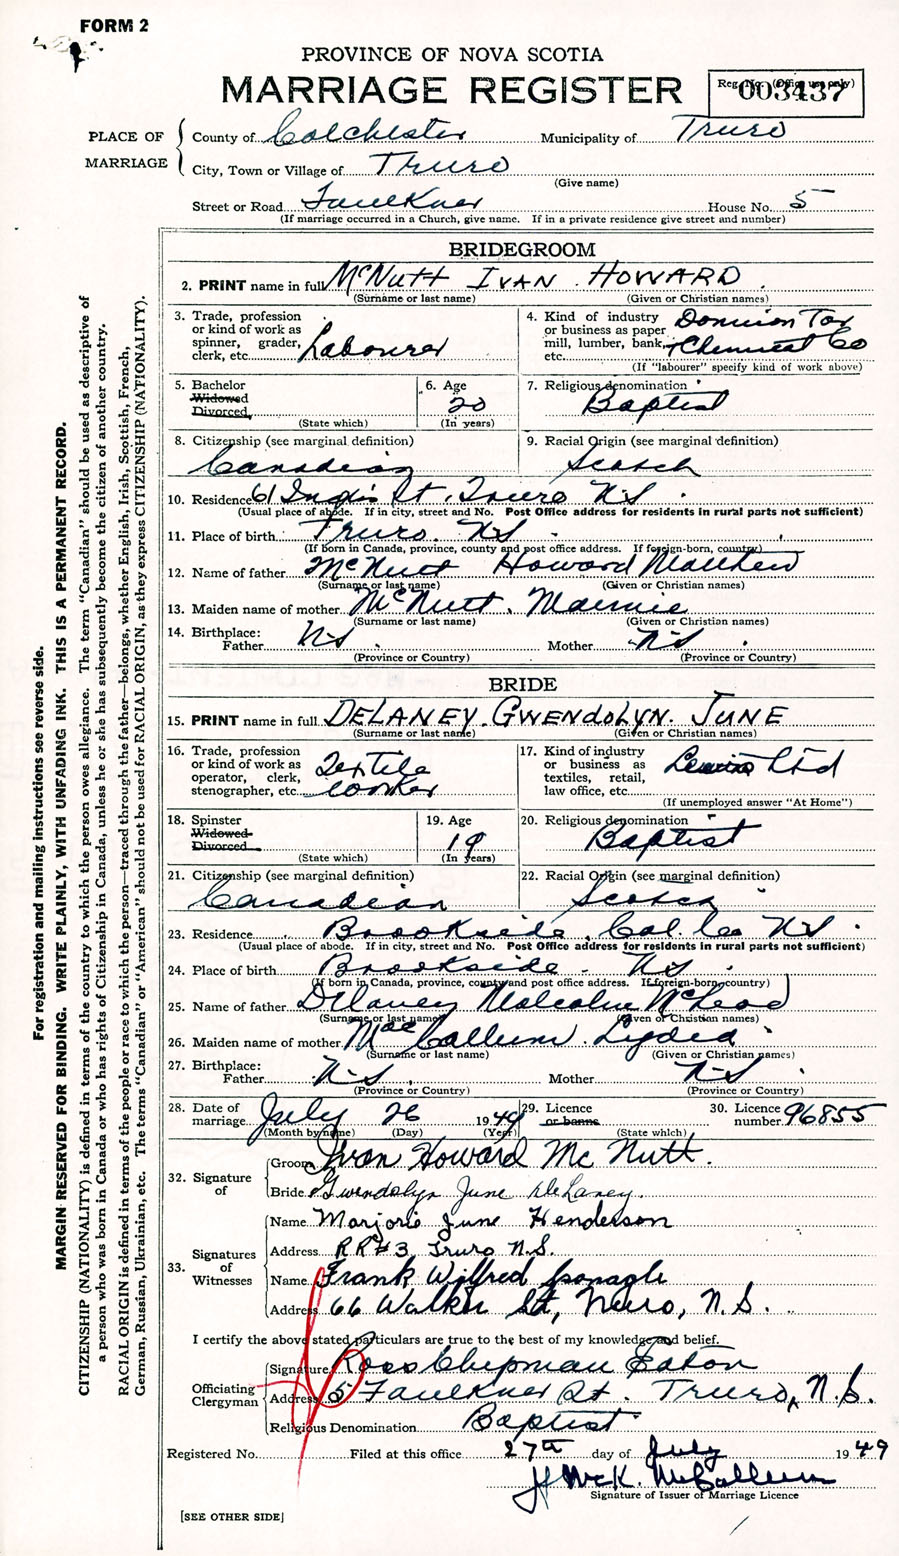 FORM 2
PROVINCE OF NOVA SCOTIA
MARRIAGE REGISTER
Reg. No. (Office use only)
003437
PLACE OF MARRIAGE
County of Colchester Municipality of Truro
City, Town or Village of Truro
(Give name)
Street or Road Faulkner House No. 5
(If marriage occurred in a Church, give name. If in a private residence give street and number)
BRIDEGROOM
2. PRINT name in full McNUTT IVAN HOWARD
(Surname or last name) (Given or Christian names)
3. Trade, profession or kind of work as spinner, grader, clerk, etc. Labourer
4. Kind of industry or business as paper mill, lumber, bank, etc. Dominion Tar + Chemical Co
(If "labourer" specify kind of work above)
5. Bachelor
Widowed
Divorced
(State which)
6. Age 20
(In years)
7. Religious denomination Baptist
8. Citizenship (see marginal definition) Canadian
9. Racial Origin (see marginal definition) Scotch
10. Residence 61 Inglis St. Truro N.S.
(Usual place of abode. If in city, street and No. Post Office address for residents in rural parts not sufficient)
11. Place of birth Truro. N.S.
(If born in Canada, province, county and post office address. If foreign-born, country)
12. Name of father McNutt Howard Matthew
(Surname or last name) (Given or Christian names)
13. Maiden name of mother McNutt. Mamie
(Surname or last name) (Given or Christian names)
14. Birthplace:
Father N.S. Mother N.S.
(Province or Country) (Province or Country)
BRIDE
15. PRINT name in full DELANEY. GWENDOLYN. JUNE
(Surname or last name) (Given or Christian names)
16. Trade, profession or kind of work as operator, clerk, stenographer, etc. Textile worker
17. Kind of industry or business as textiles, retail, law office, etc. Ltd
(If unemployed answer "At Home")
18. Spinster
Widowed
Divorced
(State which)
19. Age 19
(In years)
20. Religious denomination Baptist
21. Citizenship (see marginal definition) Canadian
22. Racial Origin (see marginal definition) Scotch
23. Residence Brookside, Col. Co N.S.
(Usual place of abode. If in city, street and No. Post Office address for residents in rural parts not sufficient)
24. Place of birth Brookside. N.S.
(If born in Canada, province, county and post office address. If foreign-born, country)
25. Name of father Delaney Malcolm McLeod
(Surname or last name) (Given or Christian names)
26. Maiden name of mother MacCallum. Lydia
(Surname or last name) (Given or Christian names)
27. Birthplace:
Father N.S. Mother N.S.
(Province or Country) (Province or Country)
28. Date of marriage July 26 1949
(Month by name) (Day) (Year)
29. Licence
or banns
(State which)
30. Licence number 96855
32. Signature of
Groom Ivan Howard Mc Nutt.
Bride Gwendolyn June DeLaney.
33. Signatures of Witnesses
Name Marjorie June Henderson
Address R R #3, Truro N.S.
Name Frank Wilfred Sponagle
Address 66 Walker St, Truro, N.S.
I certify the above stated particulars are true to the best of my knowledge and belief.
Officiating Clergyman
Signature Ross Chipman Eaton
Address 5. Faulkner St. Truro, N.S.
Religious Denomination Baptist
Registered No. Filed at this office 27th day of July 1949
H McK. McCallum
Signature of Issuer of Marriage Licence
[SEE OTHER SIDE]
For registration and mailing instructions see reverse side.
MARGIN RESERVED FOR BINDING. WRITE PLAINLY, WITH UNFADING INK. THIS IS A PERMANENT RECORD.
CITIZENSHIP (NATIONALITY) is defined in terms of the country to which the person owes allegiance. The term "Canadian" should be used as descriptive of
a person who was born in Canada or who has rights of Citizenship in Canada, unless he or she has subsequently become the citizen of another country.
RACIAL ORIGIN is defined in terms of the people or race to which the person—traced through the father—belongs, whether English, Irish, Scottish, French,
German, Russian, Ukrainian, etc. The terms "Canadian" or "American" should not be used for RACIAL ORIGIN, as they express CITIZENSHIP (NATIONALITY).